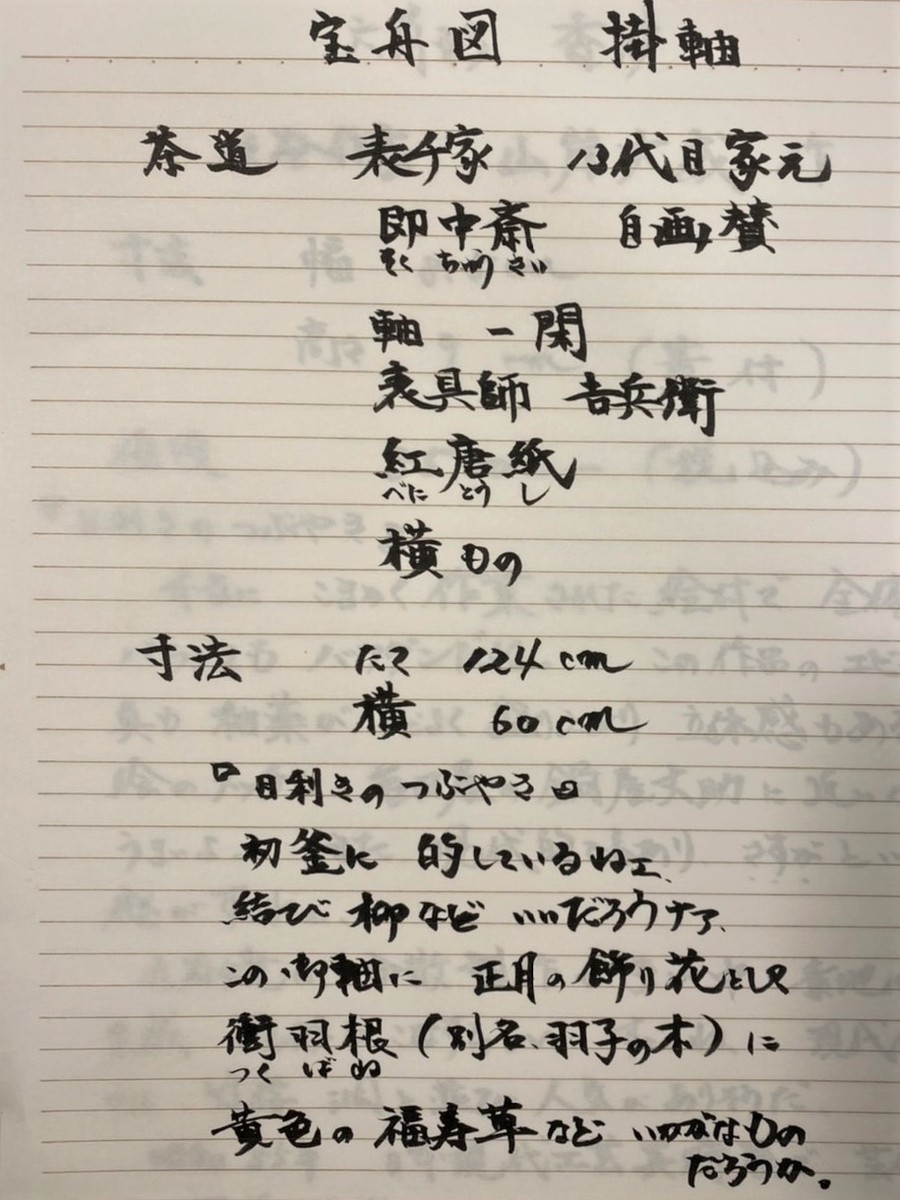 宝舟図 掛軸
茶道 表千家 13代目家元
即中斎 自画、賛
そくちゅうさい
軸 一閑
表具師 吉兵衛
紅唐紙
べにとうし
横もの
寸法 たて 124cm
横 60cm
『目利きのつぶやき』
初釜に 的しているねェ、
結び柳など いいだろうナァ、
この御軸に 正月の飾り花として
衝羽根(別名、羽子の木)に
つくばね
黄色の福寿草など いかがなもの
だろうか。